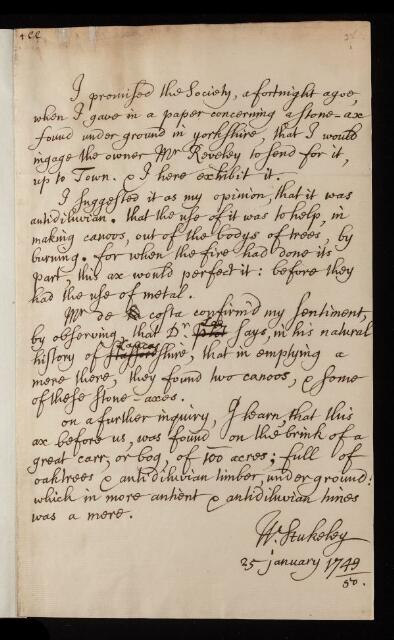 I promised the Society, a fortnight agoe,
when I gave in a paper concerning a stone-ax
found under ground in yorkshire, that I would
ingage the owner Mr Reveley to send for it,
up to Town. & I here exhibit it.
I suggested it as my opinion, that it was
antidiluvian. that the use of it was to help, in
making canoos, out of the bodys of trees, by
burning. for when the fire had done its
part, this ax would perfect it: before they
had the use of metal.
Mr de costa confirm'd my sentiment,
by observing, that Dr. Lee says, in his natural
history of Lancashire, that in emptying a
mere there, they found two canoos, & some
of these stone-axes.
on a further inquiry, I learn that this
ax before us, was found on the brink of a
great carr, or bog, of 100 acres; full of
oaktrees & antidiluvian timber, under ground:
which in more antient & antidiluvian times
was a mere.
Wm. Stukeley
25 january 1749
50.